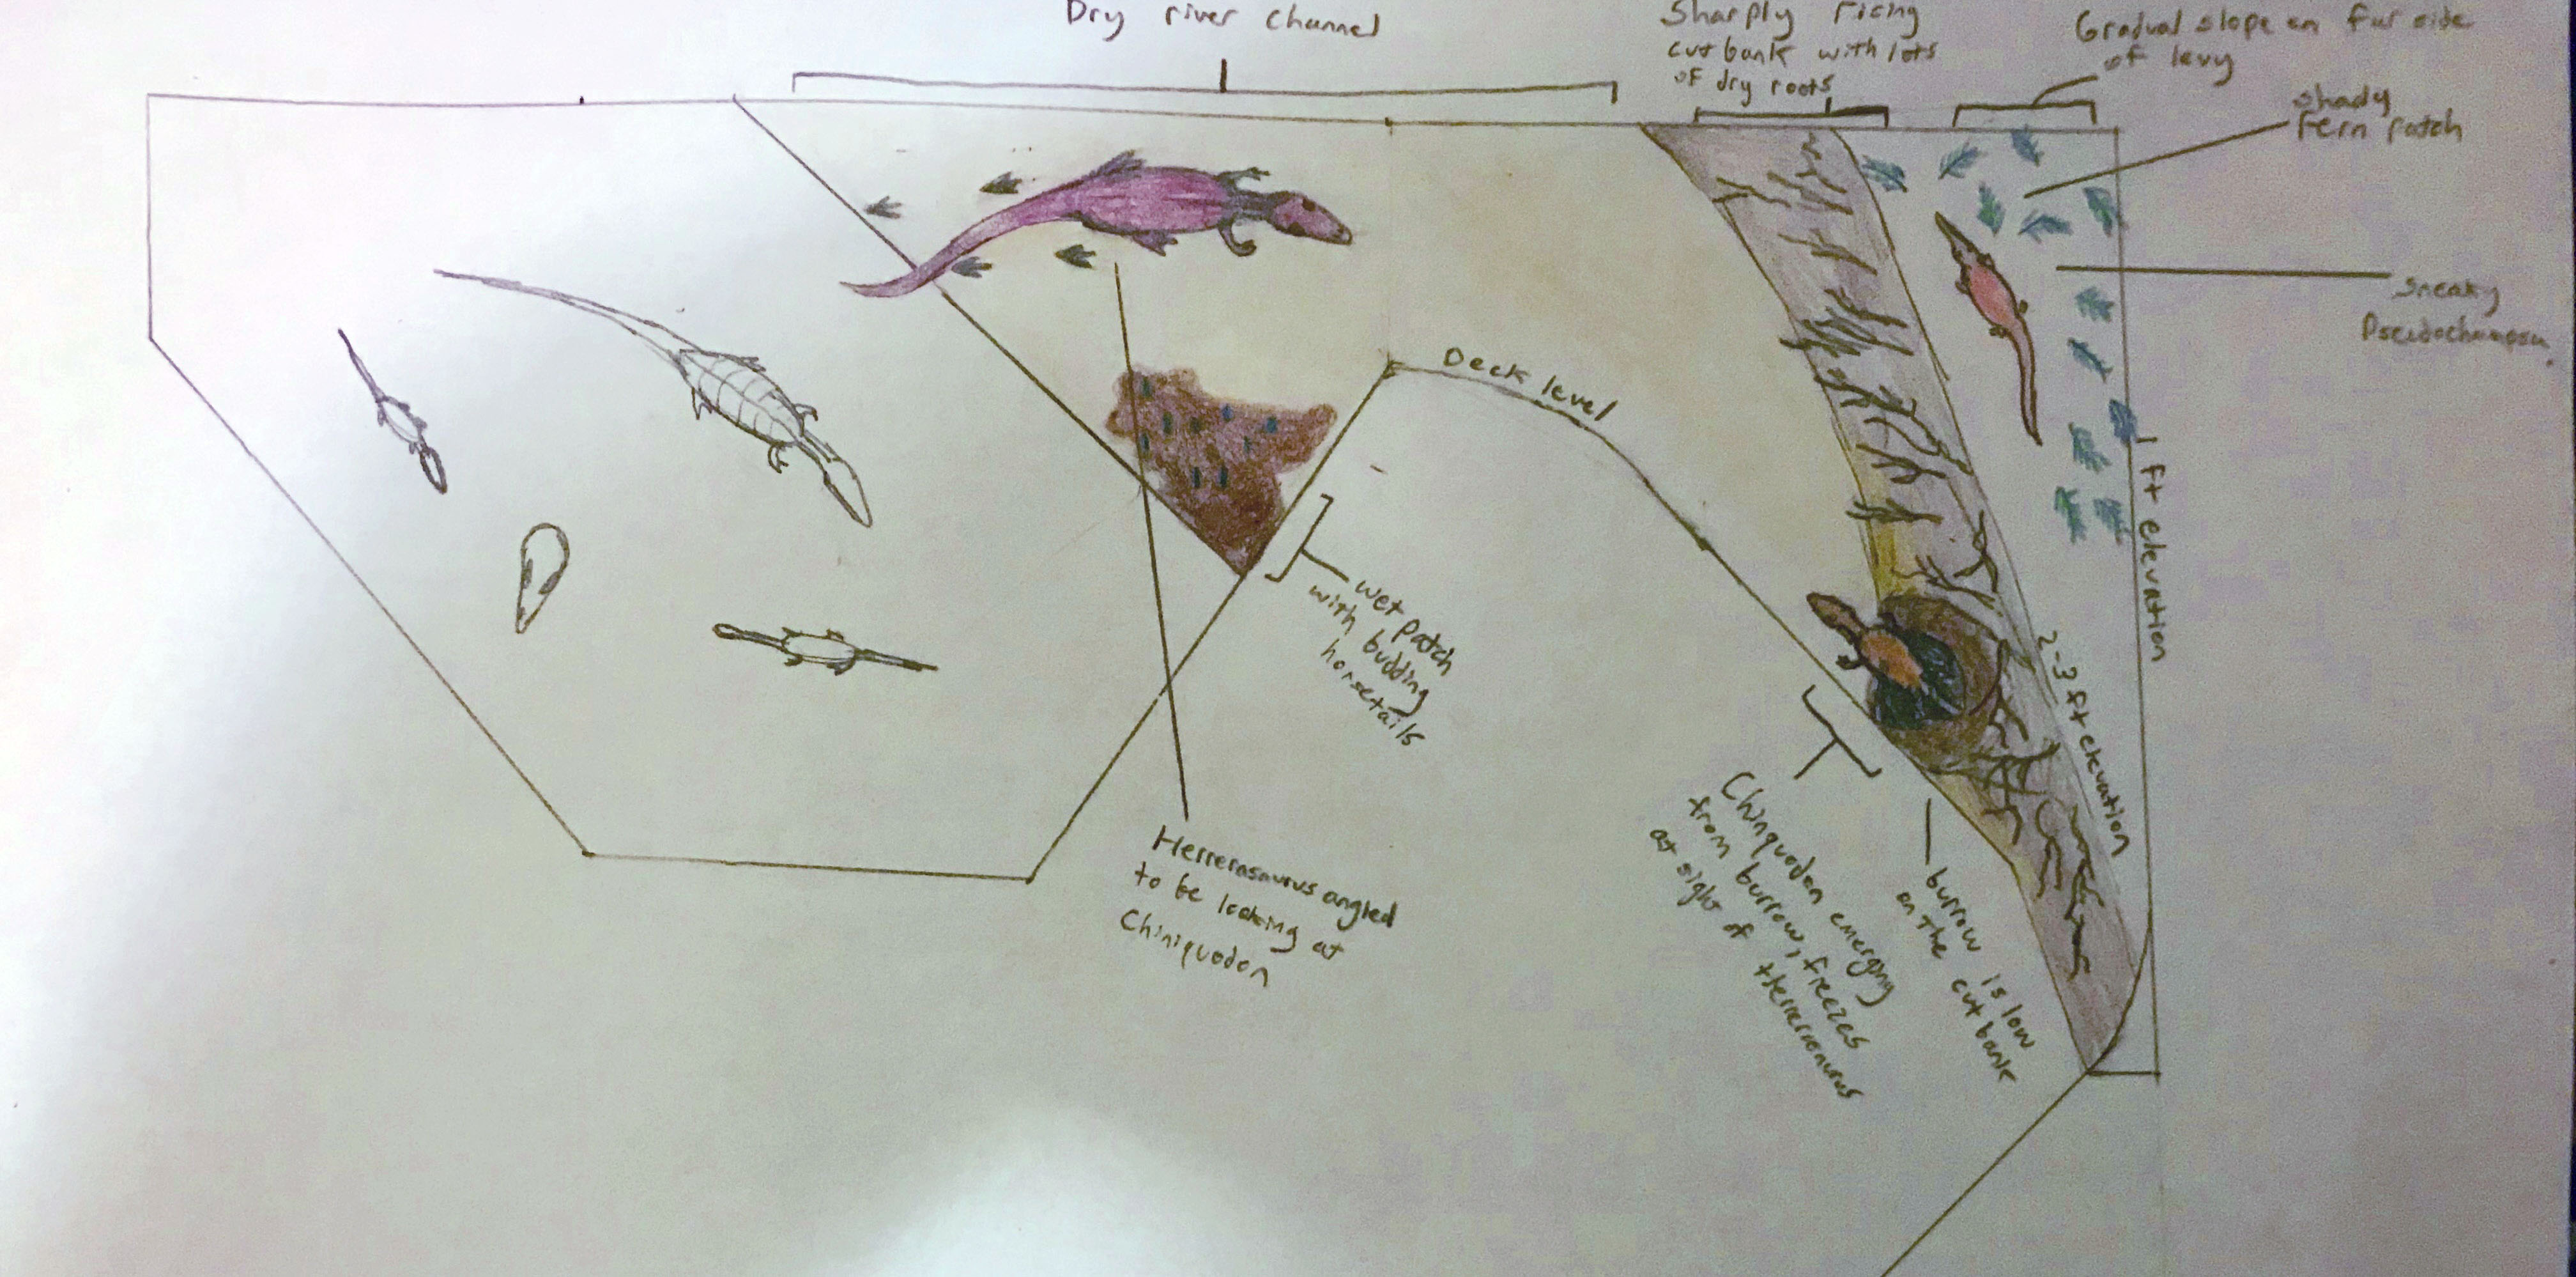 Dry river channel
Sharply ricing
cut bank with lots
of dry roots
Gradual slope on fur side
of levy
shady
Fern patch
Sneaky
Deck level
1 ft elevation
2-3 ft elevation
wet patch
with budding
horsetails
Herrerasaurus angled
to be looking at
Chiniquodon
Chinquodon emerging
from burrow, freezes
at sight of Herrerasaurus
burrow is low
on the cut bank